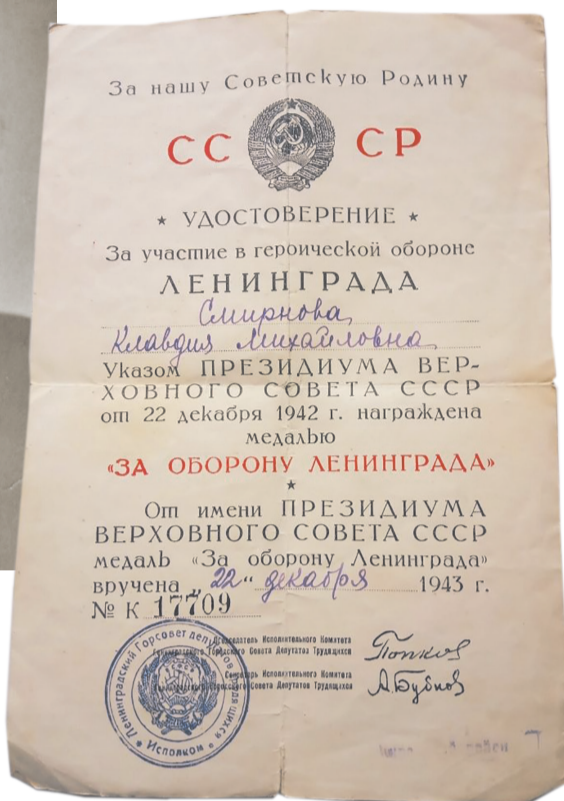 За нашу Советскую Родину
СС СР
★ УДОСТОВЕРЕНИЕ ★
За участие в героической обороне
ЛЕНИНГРАДА
Смирнова
Клавдия Михайловна
Указом ПРЕЗИДИУМА ВЕР-
ХОВНОГО СОВЕТА СССР
от 22 декабря 1942 г. награждена
медалью
«ЗА ОБОРОНУ ЛЕНИНГРАДА»
★
От имени ПРЕЗИДИУМА
ВЕРХОВНОГО СОВЕТА СССР
медаль «За оборону Ленинграда»
вручена „22“ декабря 1943 г.
№ К 17709
Председатель Исполнительного Комитета
Ленинградского Городского Совета Депутатов Трудящихся
Попков
Секретарь Исполнительного Комитета
Ленинградского Городского Совета Депутатов Трудящихся
АБубнов
Ленинградский Горсовет депутатов трудящихся
Исполком